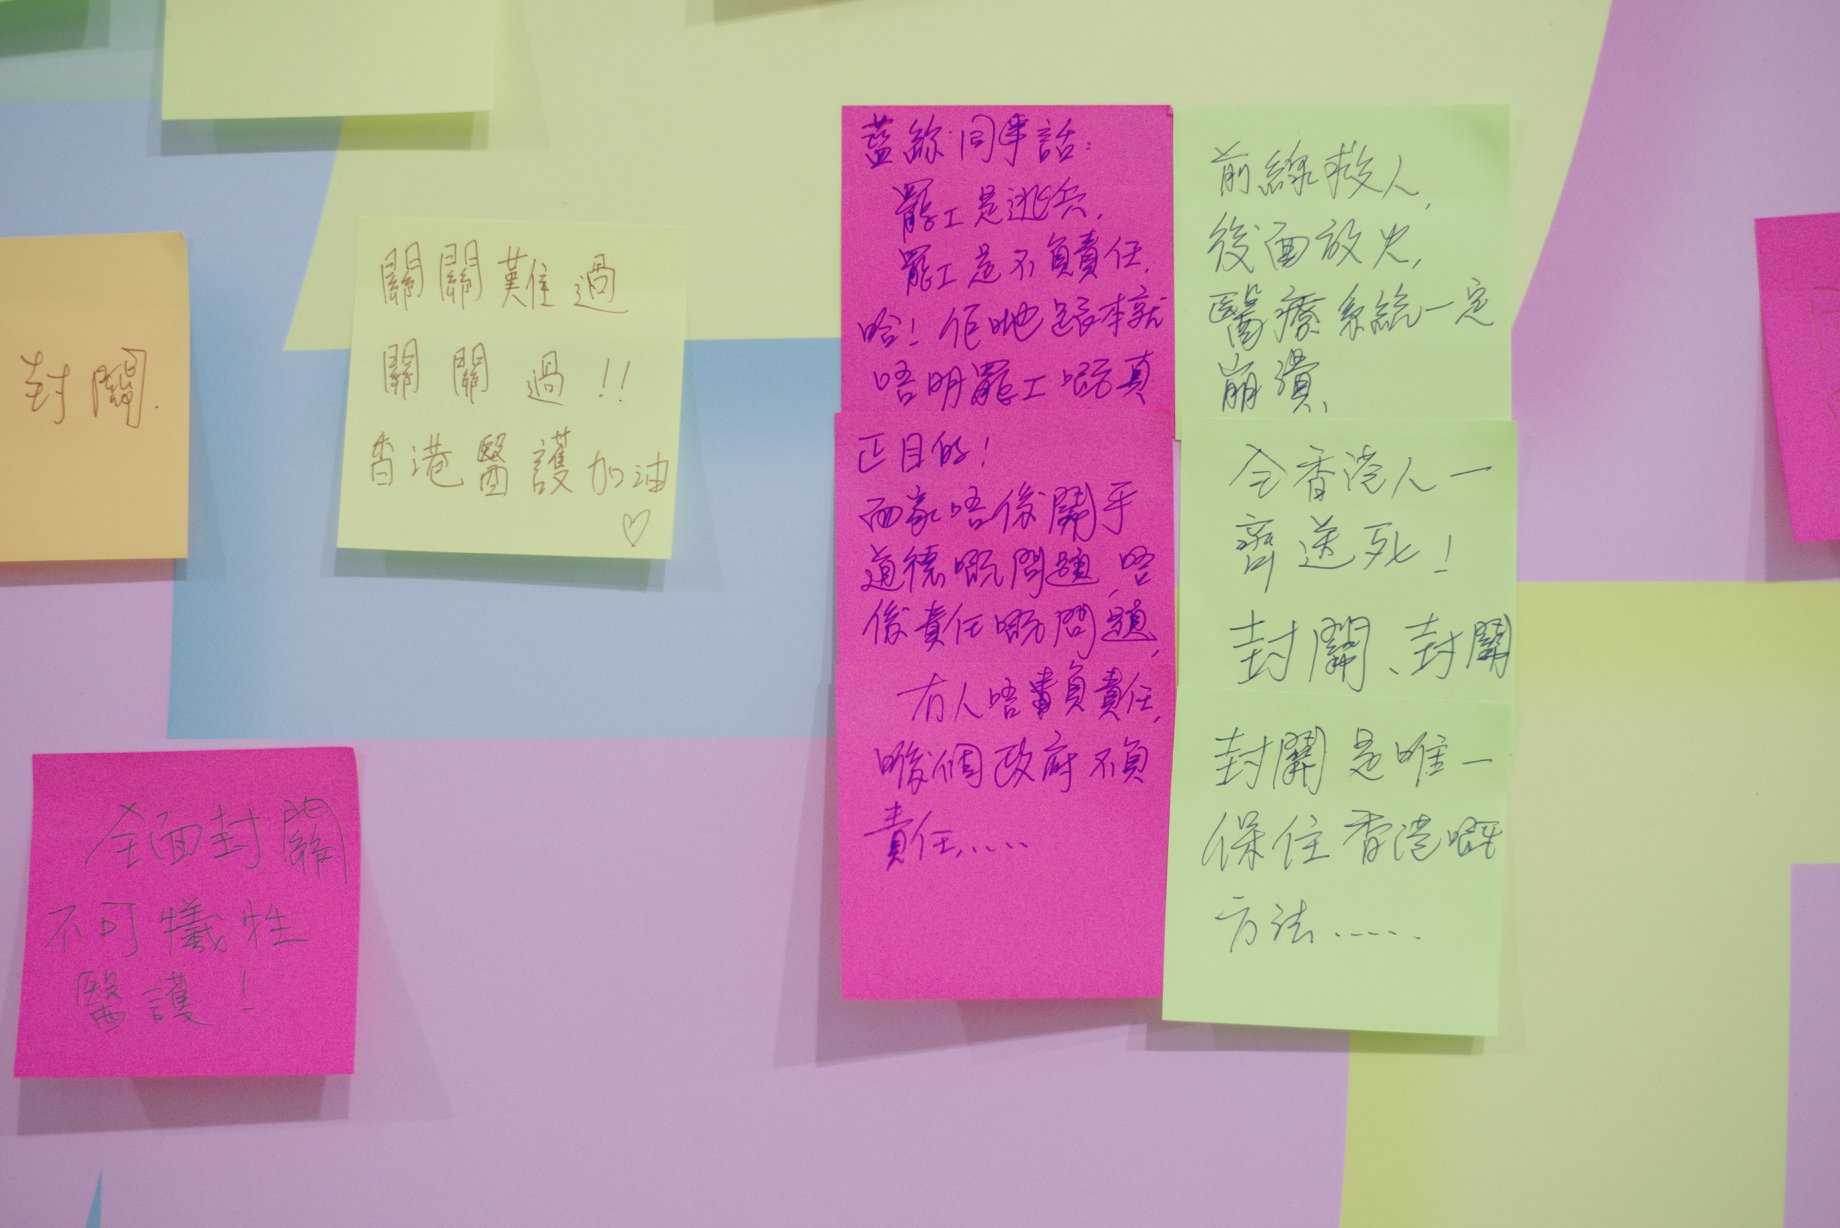 封關.
關關難過
關關過!!
香港醫護加油
♡
全面封關
不可犧牲
醫護!
藍絲同事話:
罷工是逃兵,
罷工是不負責任,
哈!佢哋跟本就
唔明罷工嘅真
正目的!
而家唔係關乎
道德嘅問題,唔
係責任嘅問題,
有人唔負責任,
嗰個政府不負
責任.....
前線救人,
後面放火,
醫療系統一定
崩潰、
令香港人一
齊送死!
封關、封關
封關是唯一
保住香港嘅
方法......